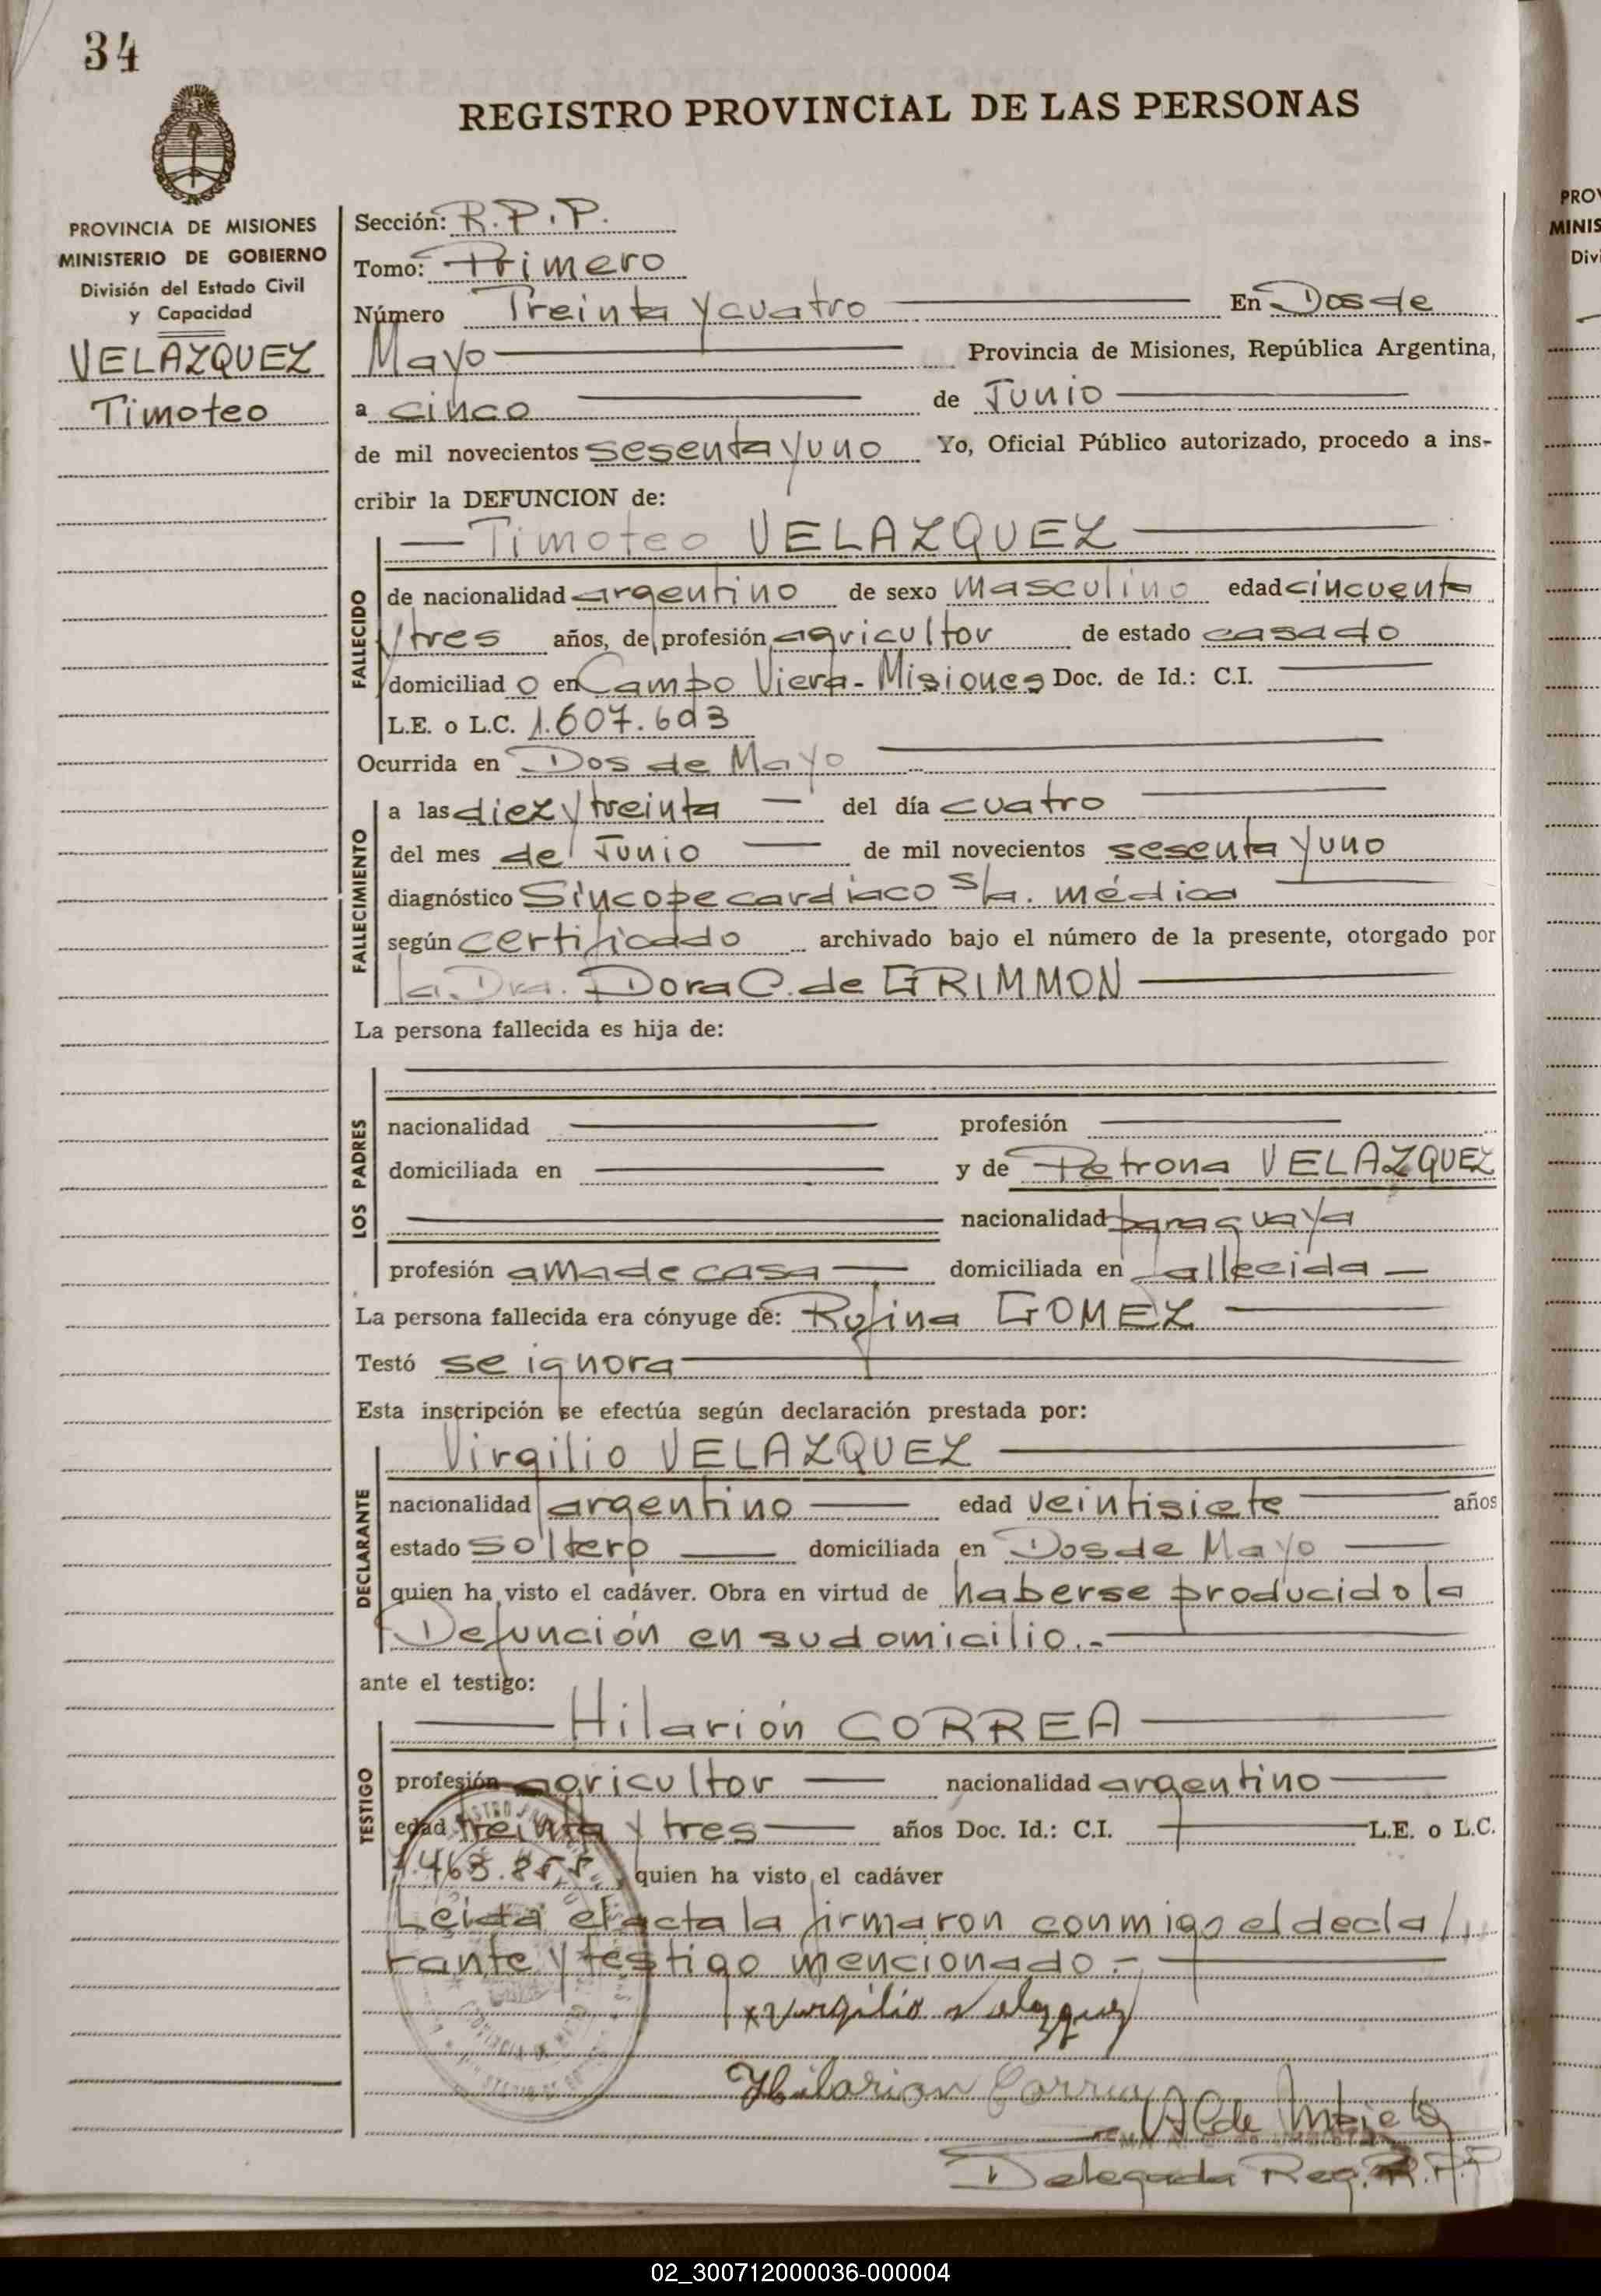 34
REGISTRO PROVINCIAL DE LAS PERSONAS
PROVINCIA DE MISIONES
MINISTERIO DE GOBIERNO
División del Estado Civil
y Capacidad
VELAZQUEZ
Timoteo
Sección: R.P.P.
Tomo: Primero
Número Treinta y cuatro En Dos de
Mayo Provincia de Misiones, República Argentina,
a cinco de Junio
de mil novecientos sesenta y uno Yo, Oficial Público autorizado, procedo a ins-
cribir la DEFUNCION de:
Timoteo VELAZQUEZ
FALLECIDO
de nacionalidad argentino de sexo masculino edad cincuenta
y tres años, de profesión agricultor de estado casado
domiciliad o en Campo Viera - Misiones Doc. de Id.: C.I.
L.E. o L.C. 1.607.603
Ocurrida en Dos de Mayo
FALLECIMIENTO
a las diez y treinta del día cuatro
del mes de Junio de mil novecientos sesenta y uno
diagnóstico Síncope cardíaco s/a. médica
según certificado archivado bajo el número de la presente, otorgado por
la Dra. Dora C. de GRIMMON
La persona fallecida es hija de:
LOS PADRES
nacionalidad profesión
domiciliada en y de Petrona VELAZQUEZ
nacionalidad paraguaya
profesión ama de casa domiciliada en fallecida
La persona fallecida era cónyuge de: Rufina GOMEZ
Testó se ignora
Esta inscripción se efectúa según declaración prestada por:
Virgilio VELAZQUEZ
DECLARANTE
nacionalidad argentino edad veintisiete años
estado soltero domiciliada en Dos de Mayo
quien ha visto el cadáver. Obra en virtud de haberse producido la
Defunción en su domicilio.-
ante el testigo:
Hilarión CORREA
TESTIGO
profesión agricultor nacionalidad argentino
edad treinta y tres años Doc. Id.: C.I. L.E. o L.C.
7.463.855 quien ha visto el cadáver
Leída el acta la firmaron conmigo el decla
rante y testigo mencionado.-
x Virgilio Velazquez
Hilarion Correa
Delegada Reg. R.P.P
PROV
MINIS
Divi
02_300712000036-000004